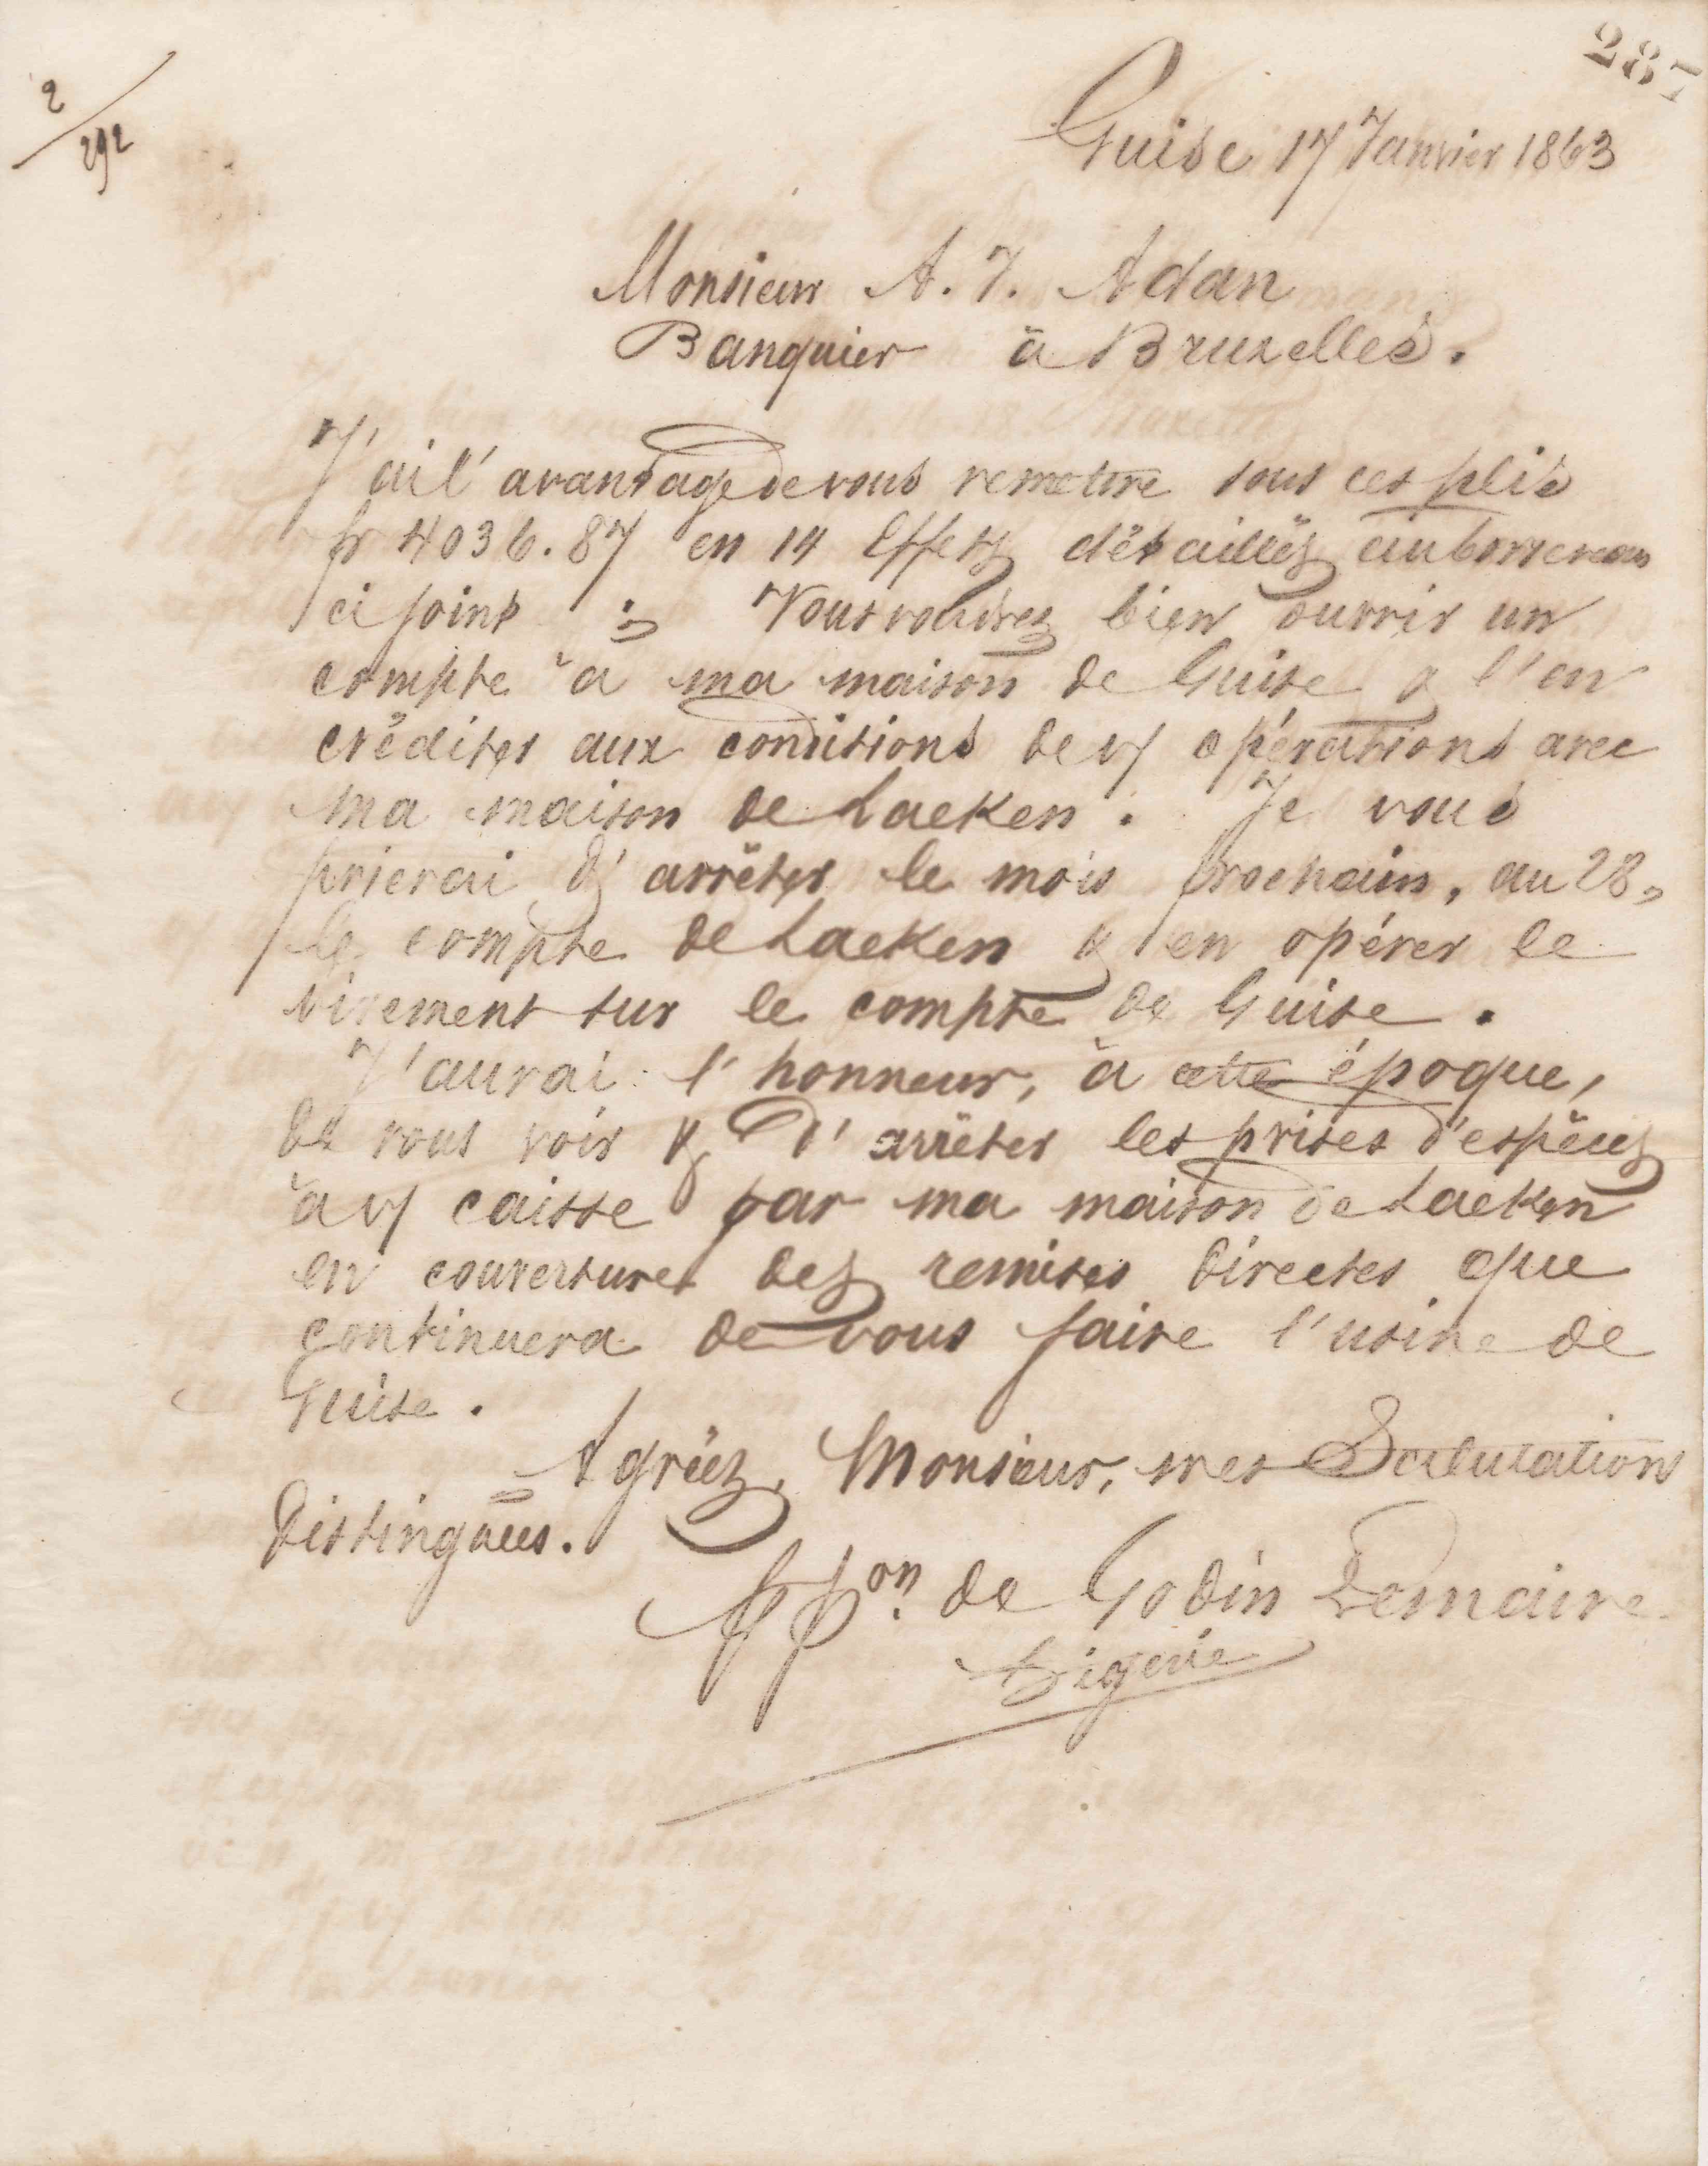 287
2/292
Guise 17 Janvier 1863
Monsieur A. J. Adan
Banquier à Bruxelles.
J'ai l'avantage de vous remettre sous ces plis
fr 4036.87 en 14 Effets détaillés au bordereau
ci joint ; Vous voudrez bien ouvrir un
compte à ma maison de Guise & l'en
créditer aux conditions de v/ opérations avec
ma maison de Laeken. Je vous
prierai d'arrêter le mois prochain, au 28,
le compte de Laeken & en opérer le
virement sur le compte de Guise.
J'aurai l'honneur, à cette époque,
de vous voir & d'arrêter les prises d'espèces
à v/ caisse par ma maison de Laeken
en couverture des remises directes que
continuera de vous faire l'usine de
Guise.
Agréez, Monsieur, mes Salutation
distinguées.
ppon. de Godin Lemaire